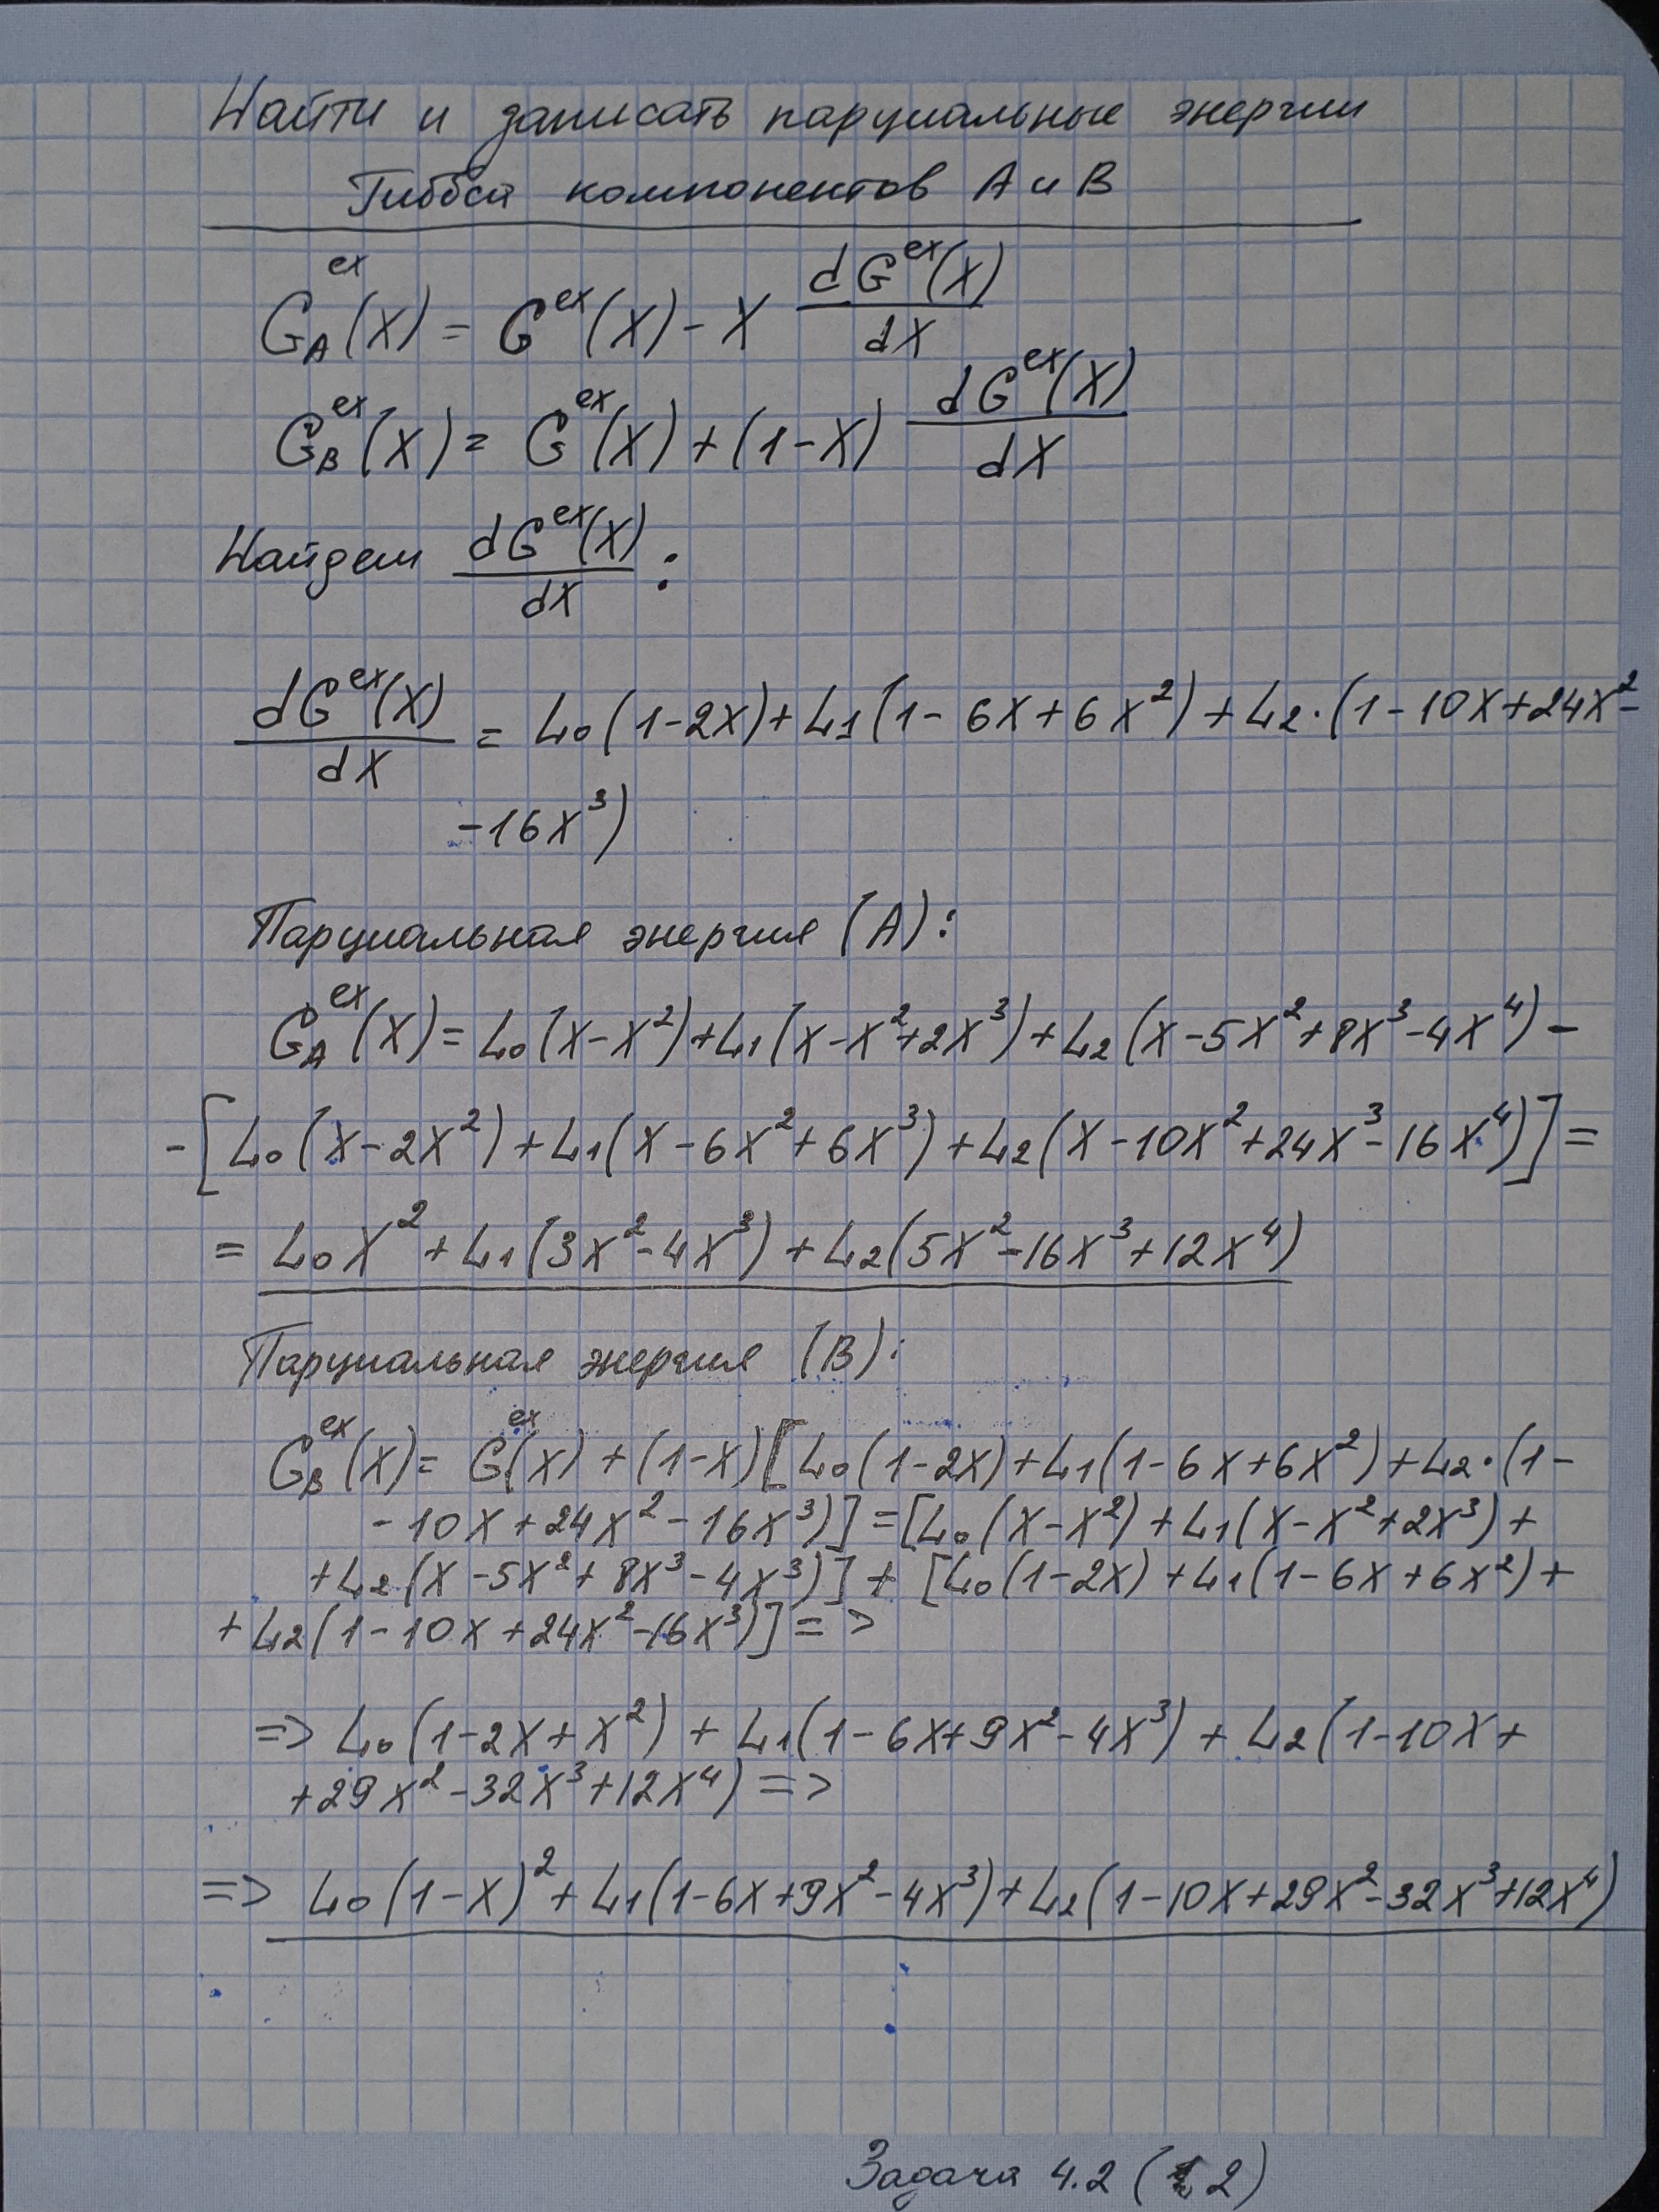 Найти и записать парциальные энергии
Гиббса компонентов A и B
G_A^ex(X) = G^ex(X) - X dG^ex(X)/dX
G_B^ex(X) = G^ex(X) + (1-X) dG^ex(X)/dX
Найдем dG^ex(X)/dX :
dG^ex(X)/dX = L₀(1-2X)+L₁(1-6X+6X²)+L₂·(1-10X+24X²-
-16X³)
Парциальная энергия (A):
G_A^ex(X)=L₀(X-X²)+L₁(X-X²+2X³)+L₂(X-5X²+8X³-4X⁴)-
-[L₀(X-2X²)+L₁(X-6X²+6X³)+L₂(X-10X²+24X³-16X⁴)]=
= L₀X²+L₁(3X²-4X³)+L₂(5X²-16X³+12X⁴)
Парциальная энергия (B):
G_B^ex(X)= G^ex(X)+(1-X)[L₀(1-2X)+L₁(1-6X+6X²)+L₂·(1-
-10X+24X²-16X³)]=[L₀(X-X²)+L₁(X-X²+2X³)+
+L₂(X-5X²+8X³-4X³)]+[L₀(1-2X)+L₁(1-6X+6X²)+
+L₂(1-10X+24X²-16X³)]=>
=> L₀(1-2X+X²)+L₁(1-6X+9X²-4X³)+L₂(1-10X+
+29X²-32X³+12X⁴)=>
=> L₀(1-X)²+L₁(1-6X+9X²-4X³)+L₂(1-10X+29X²-32X³+12X⁴)
Задача 4.2 ( 2)